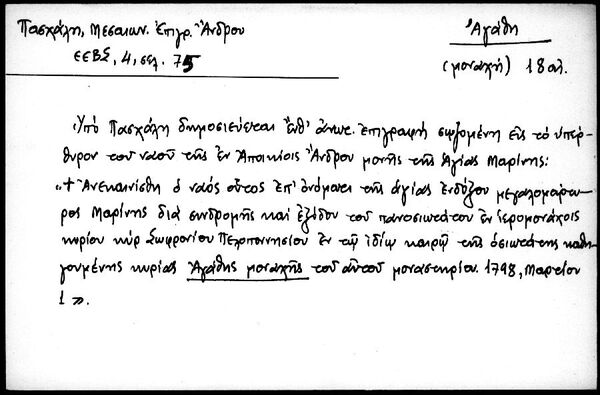 Πασχάλη, Μεσαιων. Ἐπιγρ. Ἄνδρου
ΕΕΒΣ, 4, σελ. 75
Ἀγάθη
(μοναχή) 18 αἰ.
Ὑπὸ Πασχάλη δημοσιεύεται ἔνθ' ἀνωτ. ἐπιγραφὴ σῳζομένη εἰς τὸ ὑπέρ-
θυρον τοῦ ναοῦ τῆς ἐν Ἀποικίοις Ἄνδρου μονῆς τῆς Ἁγίας Μαρίνης:
«+ Ἀνεκαινίσθη ὁ ναὸς οὗτος ἐπ' ὀνόματι τῆς ἁγίας ἐνδόξου μεγαλομάρτυ-
ρος Μαρίνης διὰ συνδρομῆς καὶ ἐξόδου τοῦ πανοσιωτάτου ἐν ἱερομονάχοις
κυρίου κὺρ Σωφρονίου Πελοποννησίου ἐν τῷ ἰδίῳ καιρῷ τῆς ὁσιωτάτης καθη-
γουμένης κυρίας Ἀγάθης μοναχῆς τοῦ αὐτοῦ μοναστηρίου. 1798, Μαρτίου
1».